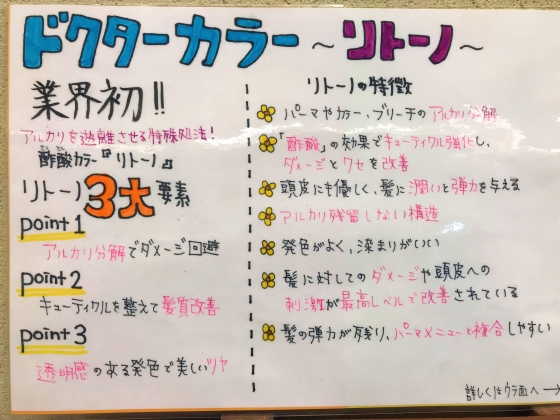 ドクターカラー ～ リトーノ ～
業界初!!
アルカリを遊離させる特殊処法!
酢酸カラー『リトーノ』
リトーノ 3大 要素
point 1
アルカリ分解でダメージ回避
point 2
キューティクルを整えて髪質改善
point 3
透明感のある発色で美しいツヤ
リトーノの特徴
パーマやカラー、ブリーチのアルカリ分解
『酢酸』の効果でキューティクル強化し、
ダメージとクセを改善
頭皮にも優しく、髪に潤いと弾力を与える
アルカリ残留しない構造
発色がよく、染まりがいい
髪に対してのダメージや頭皮への
刺激が最高レベルで改善されている
髪の弾力が残り、パーマメニューと複合しやすい
詳しくはウラ面へ→